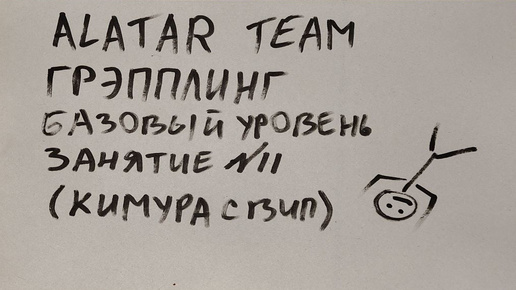 ALATAR TEAM
ГРЭППЛИНГ
БАЗОВЫЙ УРОВЕНЬ
ЗАНЯТИЕ №11
(КИМУРА ГРИП)